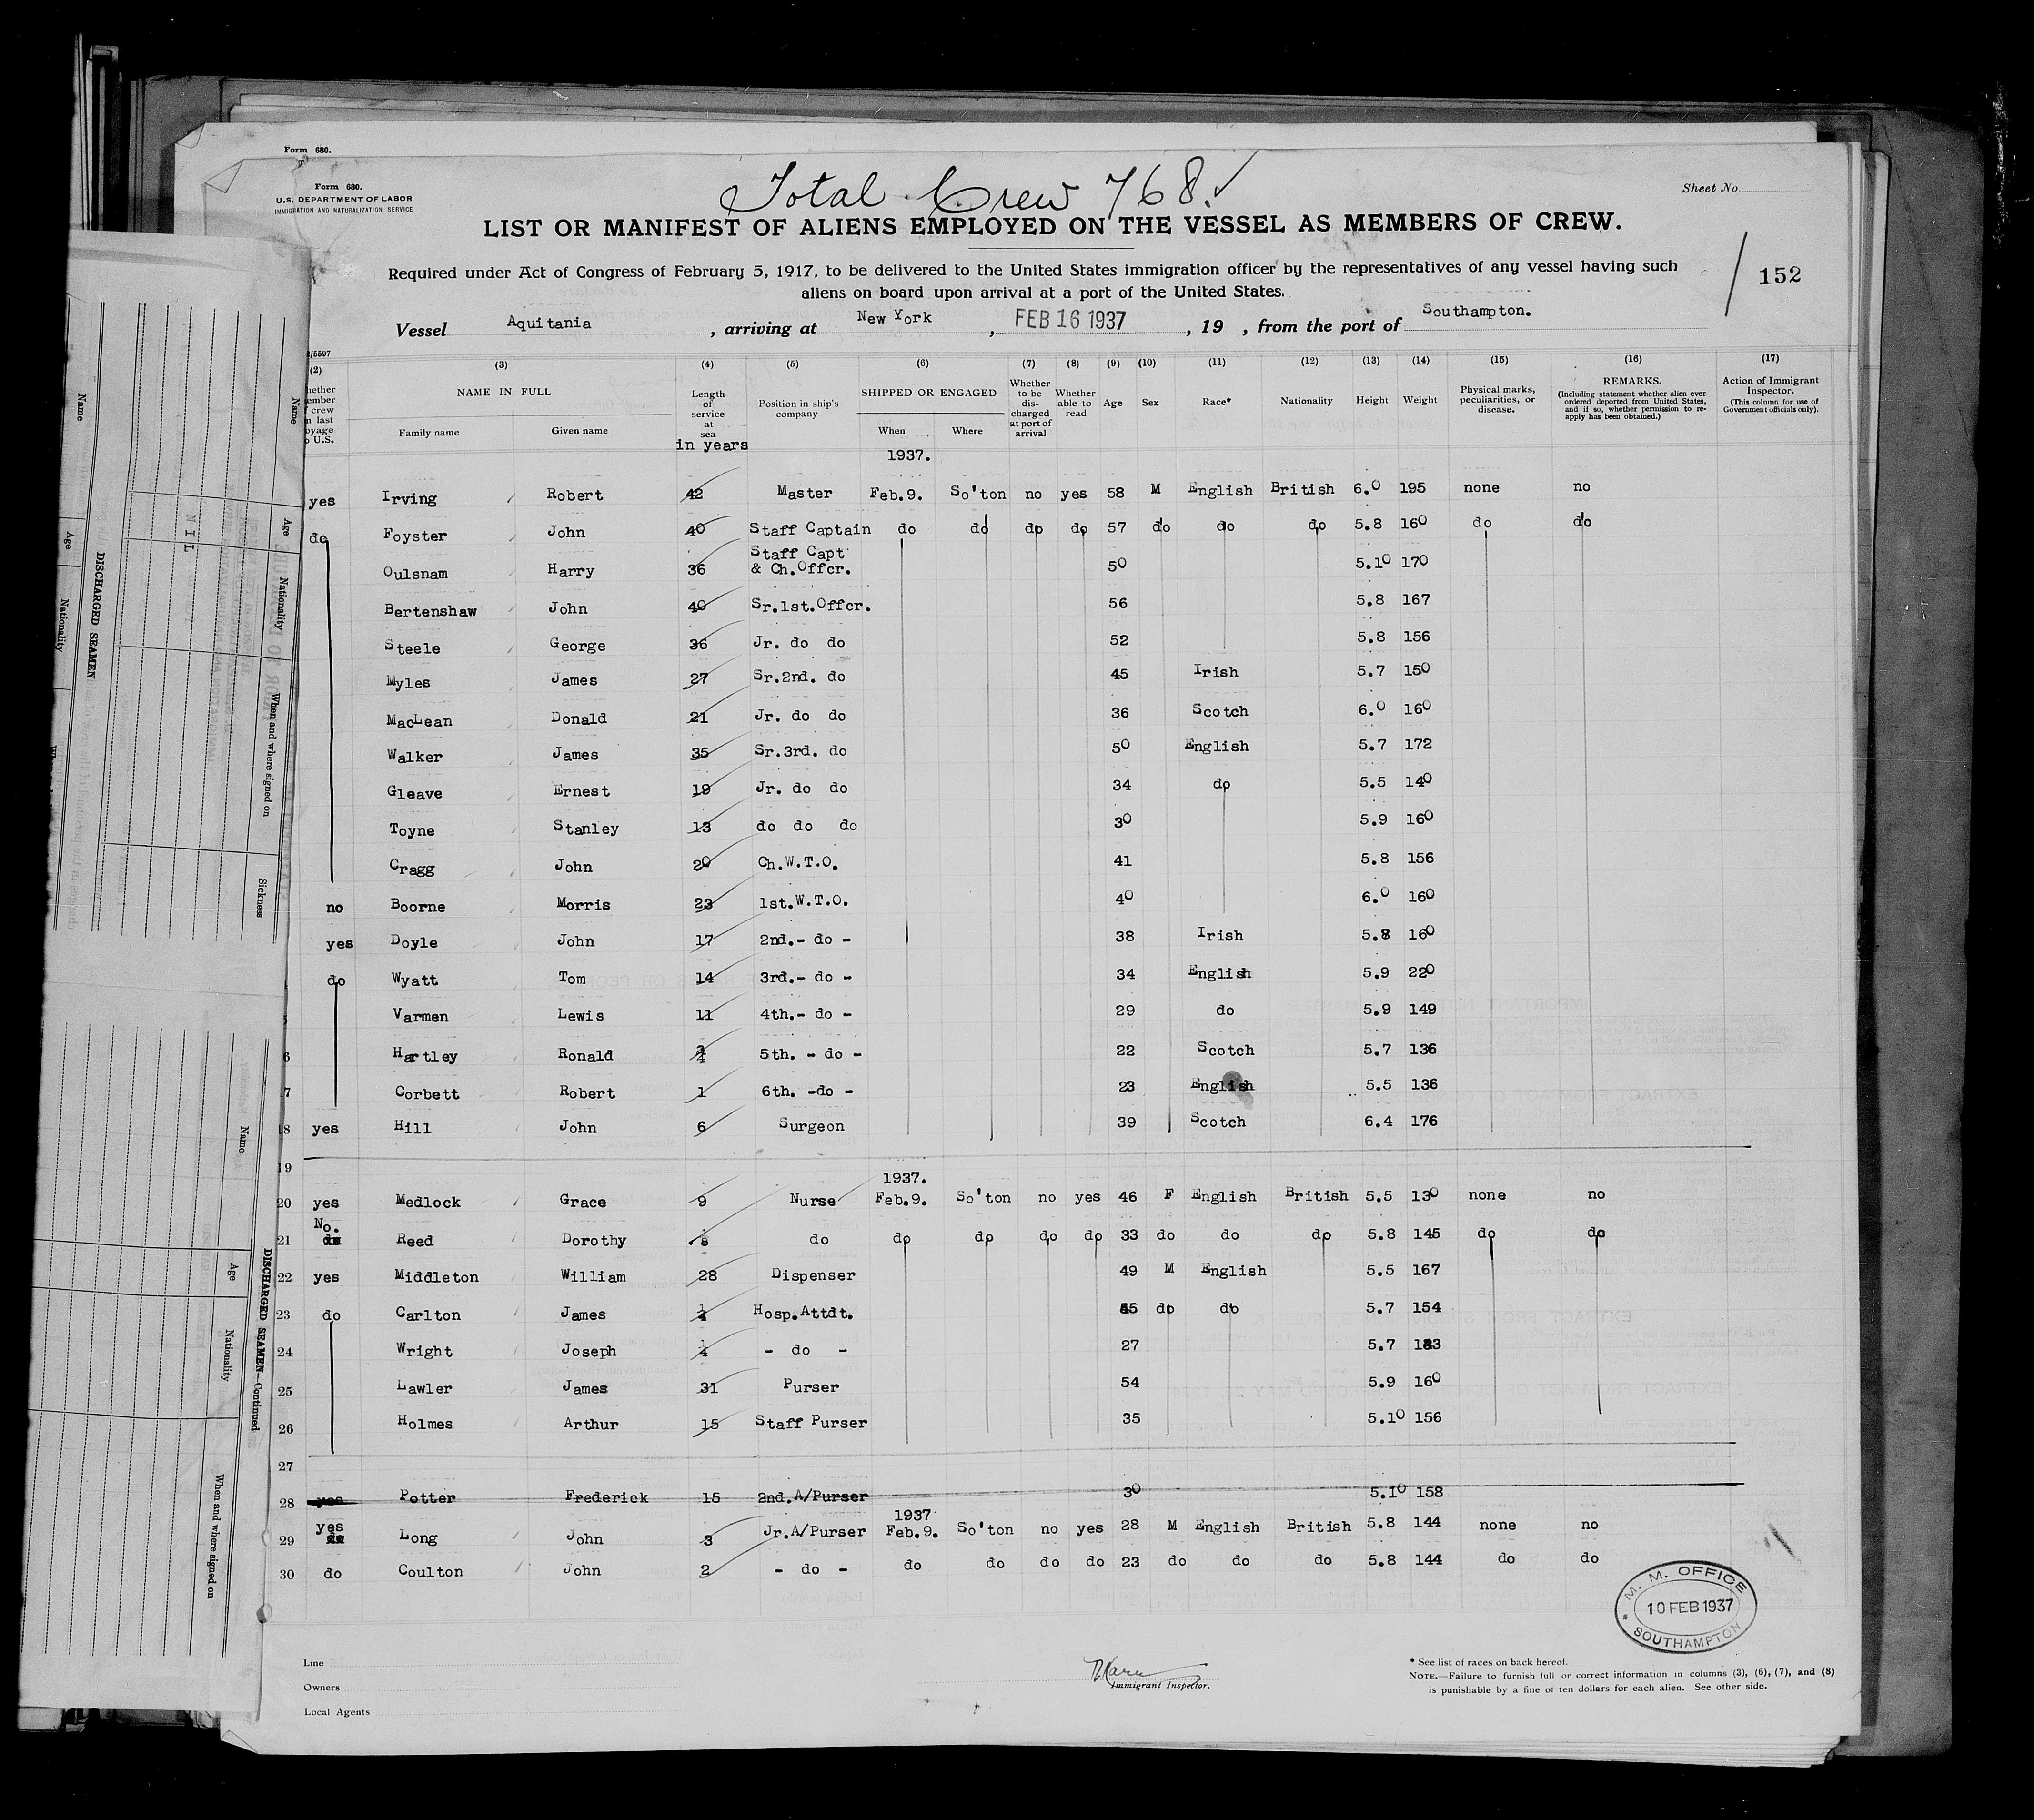 Form 680.
Form 680.
U.S. DEPARTMENT OF LABOR
IMMIGRATION AND NATURALIZATION SERVICE
Total Crew 768.
Sheet No.
LIST OR MANIFEST OF ALIENS EMPLOYED ON THE VESSEL AS MEMBERS OF CREW.
Required under Act of Congress of February 5, 1917, to be delivered to the United States immigration officer by the representatives of any vessel having such
aliens on board upon arrival at a port of the United States.
152
Vessel Aquitania, arriving at New York, FEB 16 1937, 19 , from the port of Southampton.
(2) (3) (4) (5) (6) (7) (8) (9) (10) (11) (12) (13) (14) (15) (16) (17)
NAME IN FULL
Family name Given name
Length of service at sea
in years
Position in ship's company
SHIPPED OR ENGAGED
When Where
Whether to be discharged at port of arrival
Whether able to read
Age Sex Race* Nationality Height Weight
Physical marks, peculiarities, or disease.
REMARKS.
(Including statement whether alien ever ordered deported from United States, and if so, whether permission to reapply has been obtained.)
Action of Immigrant Inspector.
(This column for use of Government officials only).
1937.
yes Irving Robert 42 Master Feb.9. So'ton no yes 58 M English British 6.0 195 none no
do Foyster John 40 Staff Captain do do do do 57 do do do 5.8 160 do do
Oulsnam Harry 36 Staff Capt & Ch.Offcr. 50 5.10 170
Bertenshaw John 40 Sr.1st.Offcr. 56 5.8 167
Steele George 36 Jr. do do 52 5.8 156
Myles James 27 Sr.2nd. do 45 Irish 5.7 150
MacLean Donald 21 Jr. do do 36 Scotch 6.0 160
Walker James 35 Sr.3rd. do 50 English 5.7 172
Gleave Ernest 19 Jr. do do 34 do 5.5 140
Toyne Stanley 13 do do do 30 5.9 160
Cragg John 20 Ch.W.T.O. 41 5.8 156
no Boorne Morris 23 1st.W.T.O. 40 6.0 160
yes Doyle John 17 2nd.- do - 38 Irish 5.8 160
do Wyatt Tom 14 3rd.- do - 34 English 5.9 220
Varmen Lewis 11 4th.- do - 29 do 5.9 149
6 Hartley Ronald 5th. - do - 22 Scotch 5.7 136
7 Corbett Robert 1 6th. -do - 23 English 5.5 136
18 yes Hill John 6 Surgeon 39 Scotch 6.4 176
19
1937.
20 yes Medlock Grace 9 Nurse Feb.9. So'ton no yes 46 F English British 5.5 130 none no
21 No. Reed Dorothy do do do do do 33 do do do 5.8 145 do do
22 yes Middleton William 28 Dispenser 49 M English 5.5 167
23 do Carlton James Hosp.Attdt. do do 5.7 154
24 Wright Joseph - do - 27 5.7
25 Lawler James 31 Purser 54 5.9 160
26 Holmes Arthur 15 Staff Purser 35 5.10 156
27
28 yes Potter Frederick 15 2nd.A/Purser 30 5.10 158
1937
29 yes Long John 3 Jr.A/Purser Feb.9. So'ton no yes 28 M English British 5.8 144 none no
30 do Coulton John 2 - do - do do do do 23 do do do 5.8 144 do do
M. M. OFFICE
10 FEB 1937
SOUTHAMPTON
Line
Owners
Local Agents
Immigrant Inspector.
* See list of races on back hereof.
NOTE.—Failure to furnish full or correct information in columns (3), (6), (7), and (8)
is punishable by a fine of ten dollars for each alien. See other side.
DISCHARGED SEAMEN
Name Age Nationality When and where signed on Sickness
NIL
DISCHARGED SEAMEN—Continued
Name Age Nationality When and where signed on